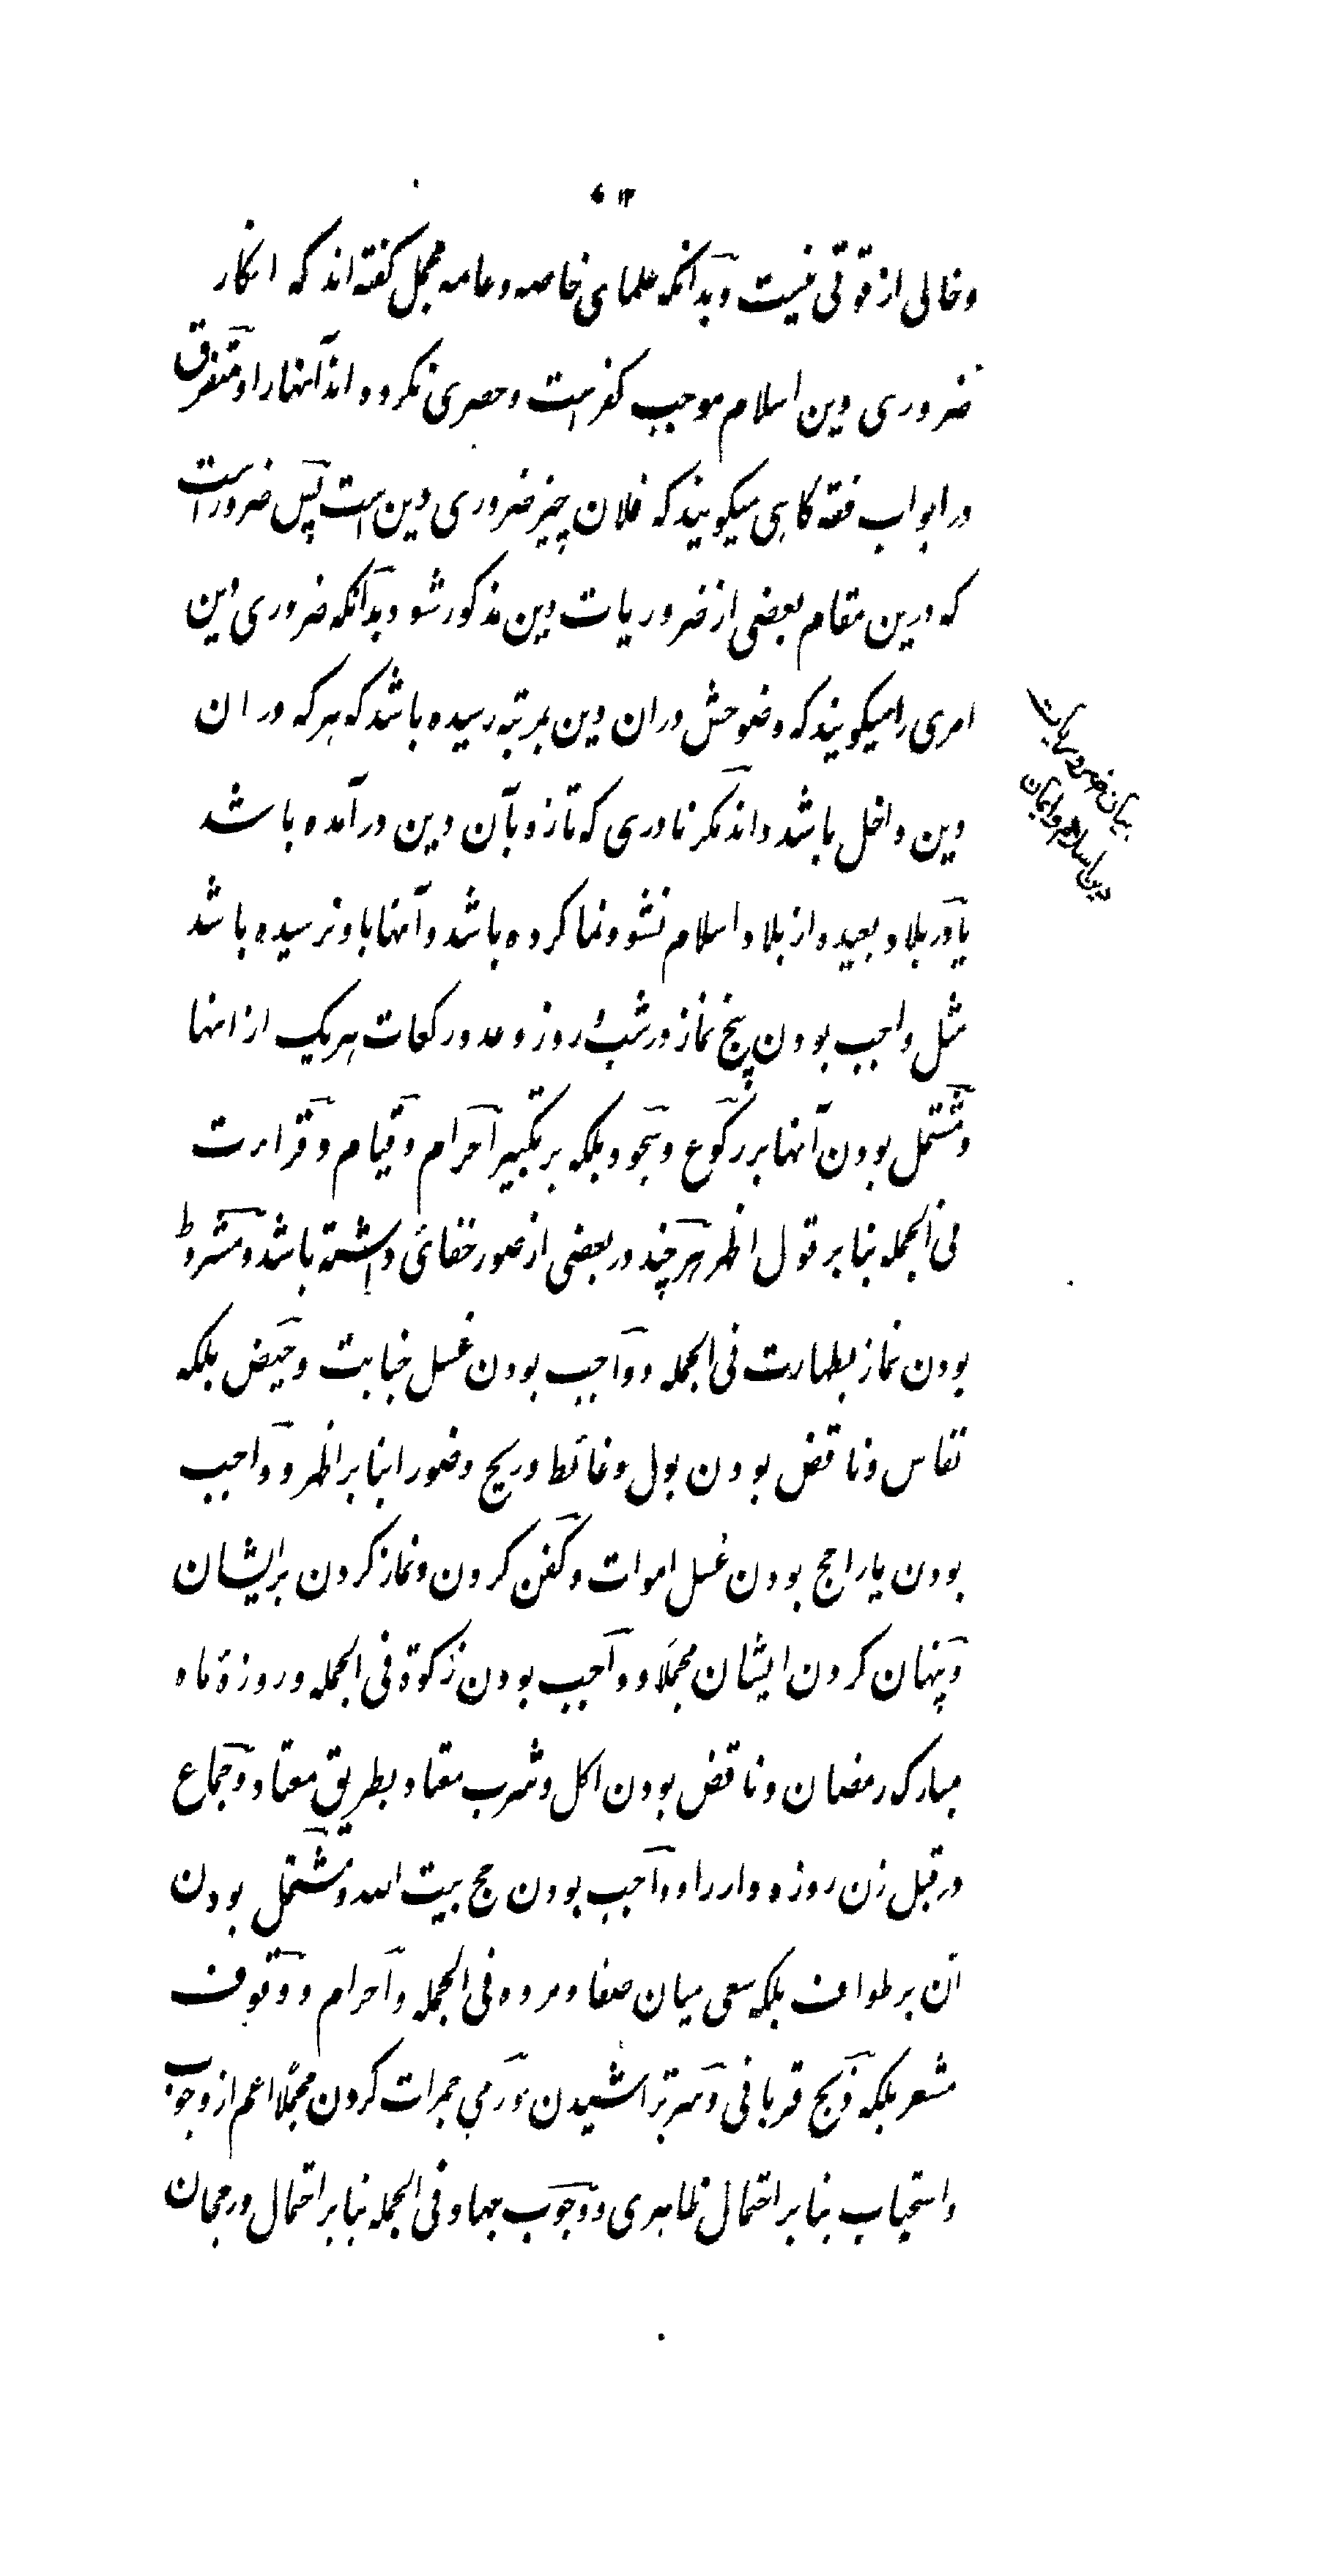 وخالی از قوتی نیست و بدانکه علمای خاصه و عامه مجمل گفته اند که انکار
ضروری دین اسلام موجب کفر است و حصری نکرده اند آنها را و متفرق
در ابواب فقه گاهی میگویند که فلان چیز ضروری دین است پس ضرور است
که درین مقام بعضی از ضروریات دین مذکور شود بدانکه ضروری دین
امری را میگویند که وضوحش در ان دین بمرتبه رسیده باشد که هر که در ان
دین داخل باشد داند مگر نادری که تازه بآن دین در آمده باشد
یا در بلاد بعیده از بلاد اسلام نشو و نما کرده باشد و آنها باو نرسیده باشد
مثل واجب بودن پنج نماز در شب و روز و عدد رکعات هر یک از انها
و مشتمل بودن آنها بر رکوع و سجود بلکه بر تکبیر احرام و قیام و قراءت
فی الجمله بنا بر قول اظهر هر چند در بعضی از صور خفائی داشته باشد و مشروط
بودن نماز بطهارت فی الجمله و واجب بودن غسل جنابت و حیض بلکه
نفاس و ناقض بودن بول و غائط و ریح وضو را بنا بر اظهر و واجب
بودن یا راجح بودن غسل اموات و کفن کردن و نماز کردن بر ایشان
و پنهان کردن ایشان مجملا و واجب بودن زکوة فی الجمله و روزۀ ماه
مبارک رمضان و ناقض بودن اکل و شرب معتاد بطریق معتاد و جماع
در قبل زن روزه دار را و واجب بودن حج بیت الله و مشتمل بودن
آن بر طواف بلکه سعی میان صفا و مروه فی الجمله و احرام و وقوف
مشعر بلکه ذبح قربانی و سر تراشیدن و رمی جمرات کردن مجملا اعم از وجوب
و استحباب بنا بر احتمال ظاهری و وجوب جهاد فی الجمله بنا بر احتمال و رجحان
بیان ضروریات
دین اسلام و ایمان